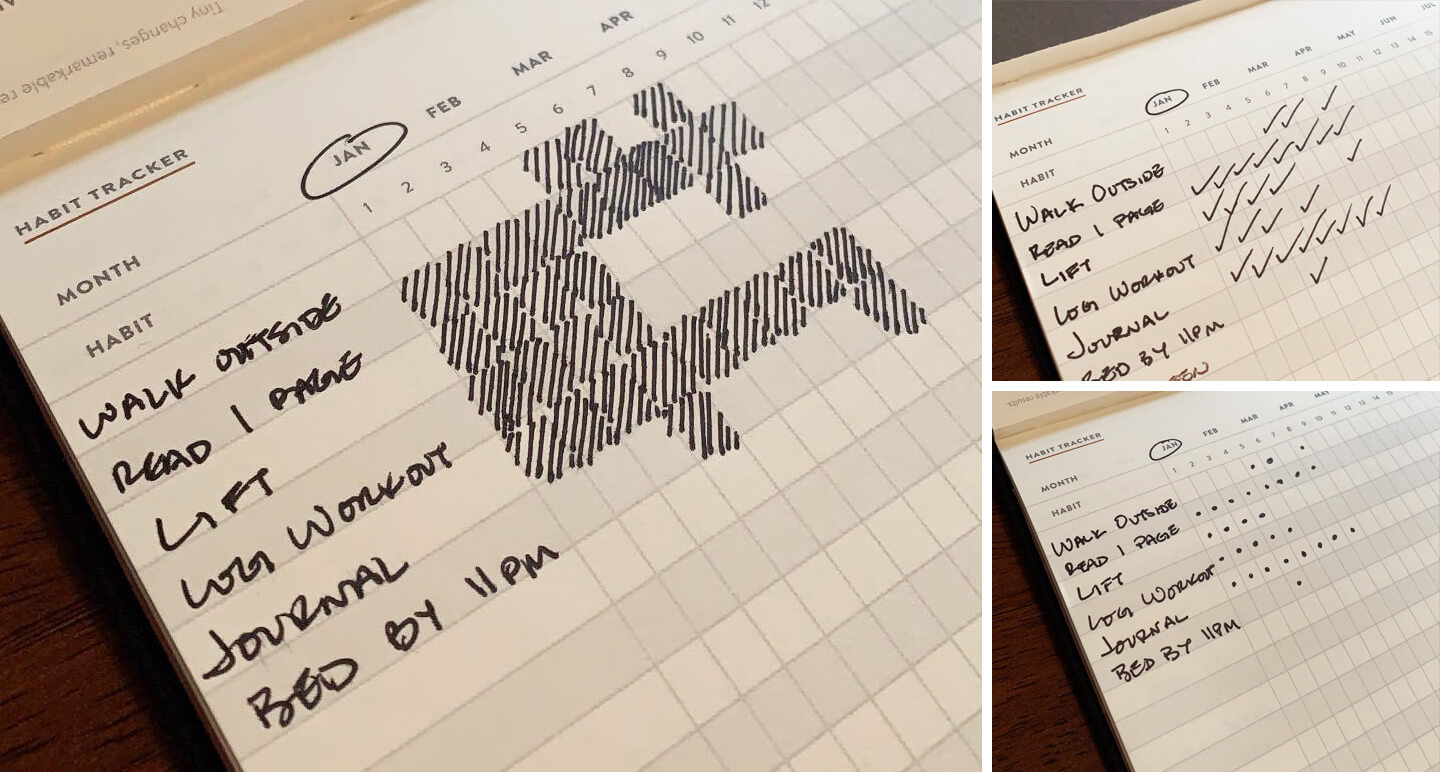 Tiny changes, remarkable re
HABIT TRACKER
MONTH
JAN FEB MAR APR
1 2 3 4 5 6 7 8 9 10 11 12
HABIT
WALK OUTSIDE
READ 1 PAGE
LIFT
LOG WORKOUT
JOURNAL
BED BY 11PM
HABIT TRACKER
MONTH
JAN FEB MAR APR MAY JUN JUL
1 2 3 4 5 6 7 8 9 10 11 12 13 14 15
HABIT
WALK OUTSIDE
READ 1 PAGE
LIFT
LOG WORKOUT
JOURNAL
BED BY 11PM
kable results
HABIT TRACKER
MONTH
JAN FEB MAR APR MAY
1 2 3 4 5 6 7 8 9 10 11 12 13 14 15
HABIT
WALK OUTSIDE
READ 1 PAGE
LIFT
LOG WORKOUT
JOURNAL
BED BY 11PM